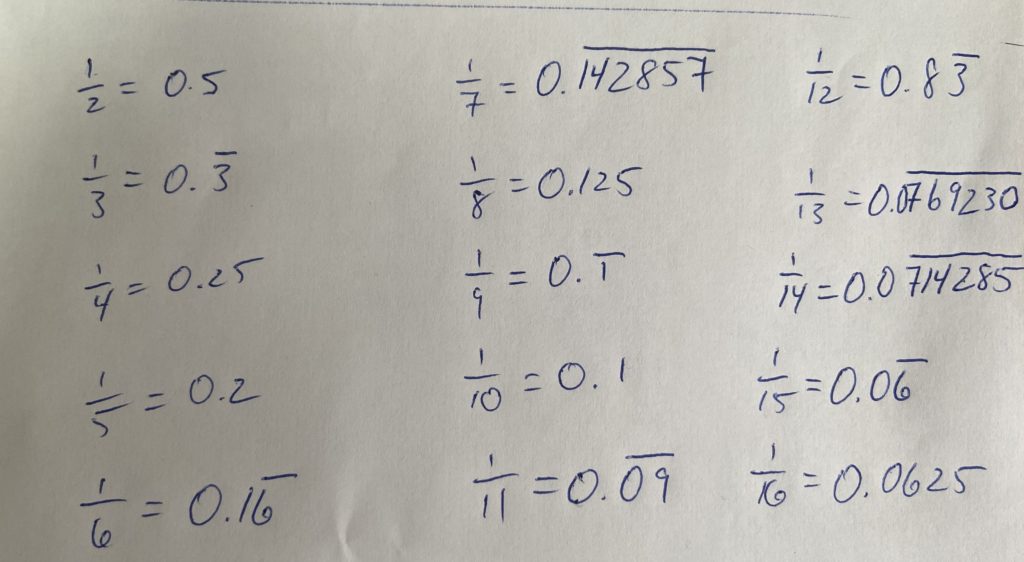 1/2 = 0.5
1/3 = 0.3̅
1/4 = 0.25
1/5 = 0.2
1/6 = 0.16̅
1/7 = 0.1̅4̅2̅8̅5̅7̅
1/8 = 0.125
1/9 = 0.1̅
1/10 = 0.1
1/11 = 0.0̅9̅
1/12 = 0.83̅
1/13 = 0.07̅6̅9̅2̅3̅0̅
1/14 = 0.07̅1̅4̅2̅8̅5̅
1/15 = 0.06̅
1/16 = 0.0625